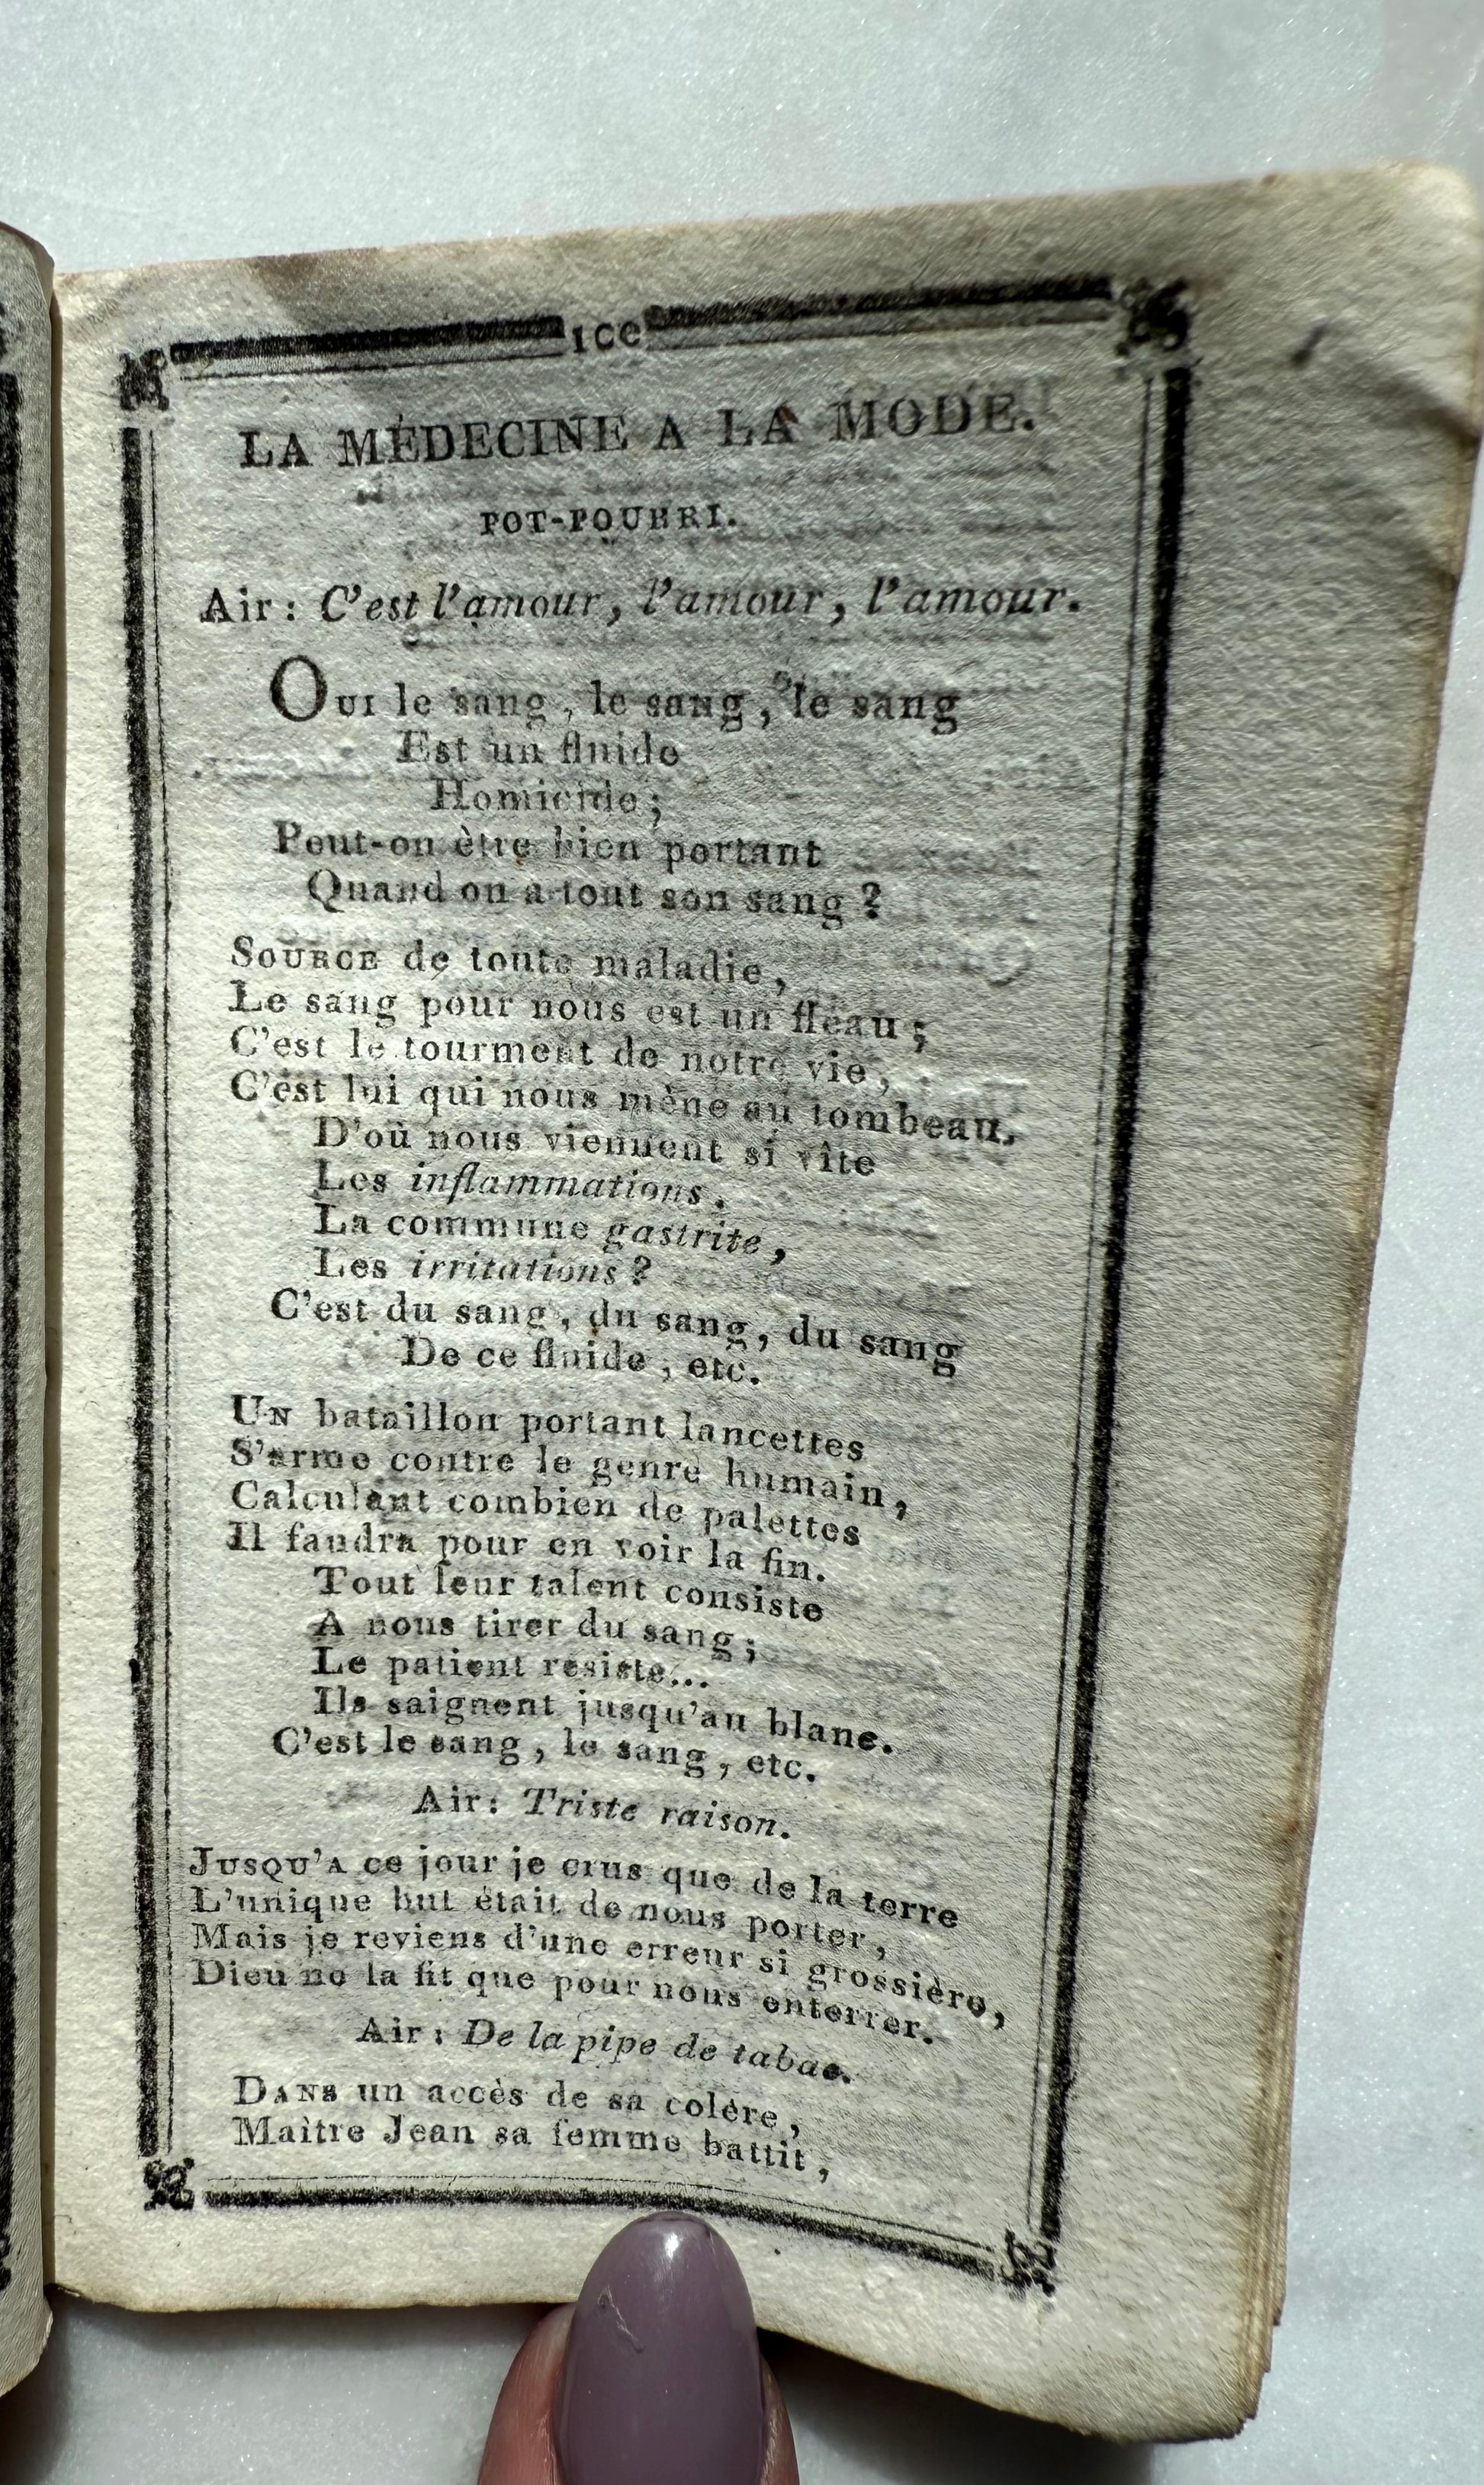 100
LA MÉDECINE A LA MODE.
POT-POURRI.
Air : C'est l'amour, l'amour, l'amour.
OUI le sang, le sang, le sang
Est un fluide
Homicide ;
Peut-on être bien portant
Quand on a tout son sang ?
SOURCE de toute maladie,
Le sang pour nous est un fléau ;
C'est le tourment de notre vie,
C'est lui qui nous mène au tombeau.
D'où nous viennent si vîte
Les inflammations,
La commune gastrite,
Les irritations ?
C'est du sang, du sang, du sang
De ce fluide, etc.
UN bataillon portant lancettes
S'arme contre le genre humain,
Calculant combien de palettes
Il faudra pour en voir la fin.
Tout leur talent consiste
A nous tirer du sang ;
Le patient résiste...
Ils saignent jusqu'au blanc.
C'est le sang, le sang, etc.
Air : Triste raison.
JUSQU'A ce jour je crus que de la terre
L'unique but était de nous porter,
Mais je reviens d'une erreur si grossière,
Dieu ne la fit que pour nous enterrer.
Air : De la pipe de tabac.
DANS un accès de sa colère,
Maître Jean sa femme battit,